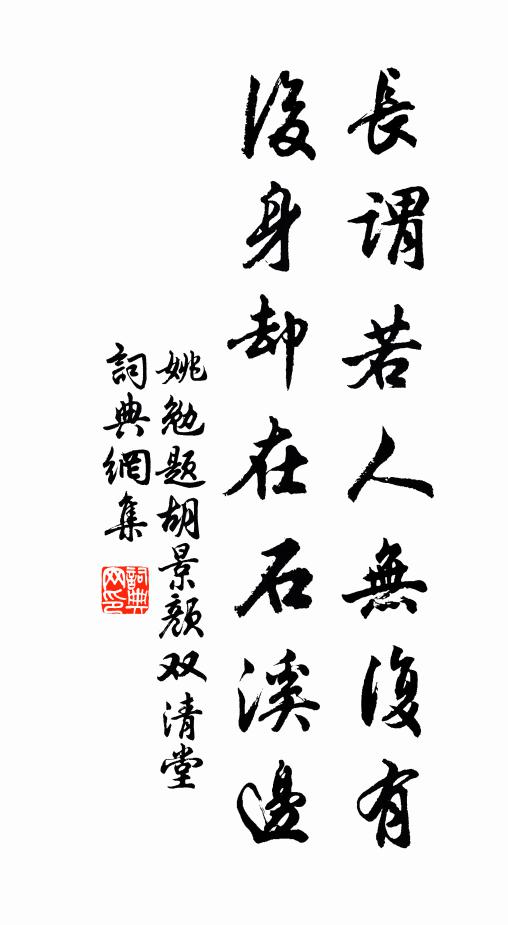 長謂若人無復有
後身却在石溪邊
姚勉題胡景顏双清堂
詞典網集
詞典
网印